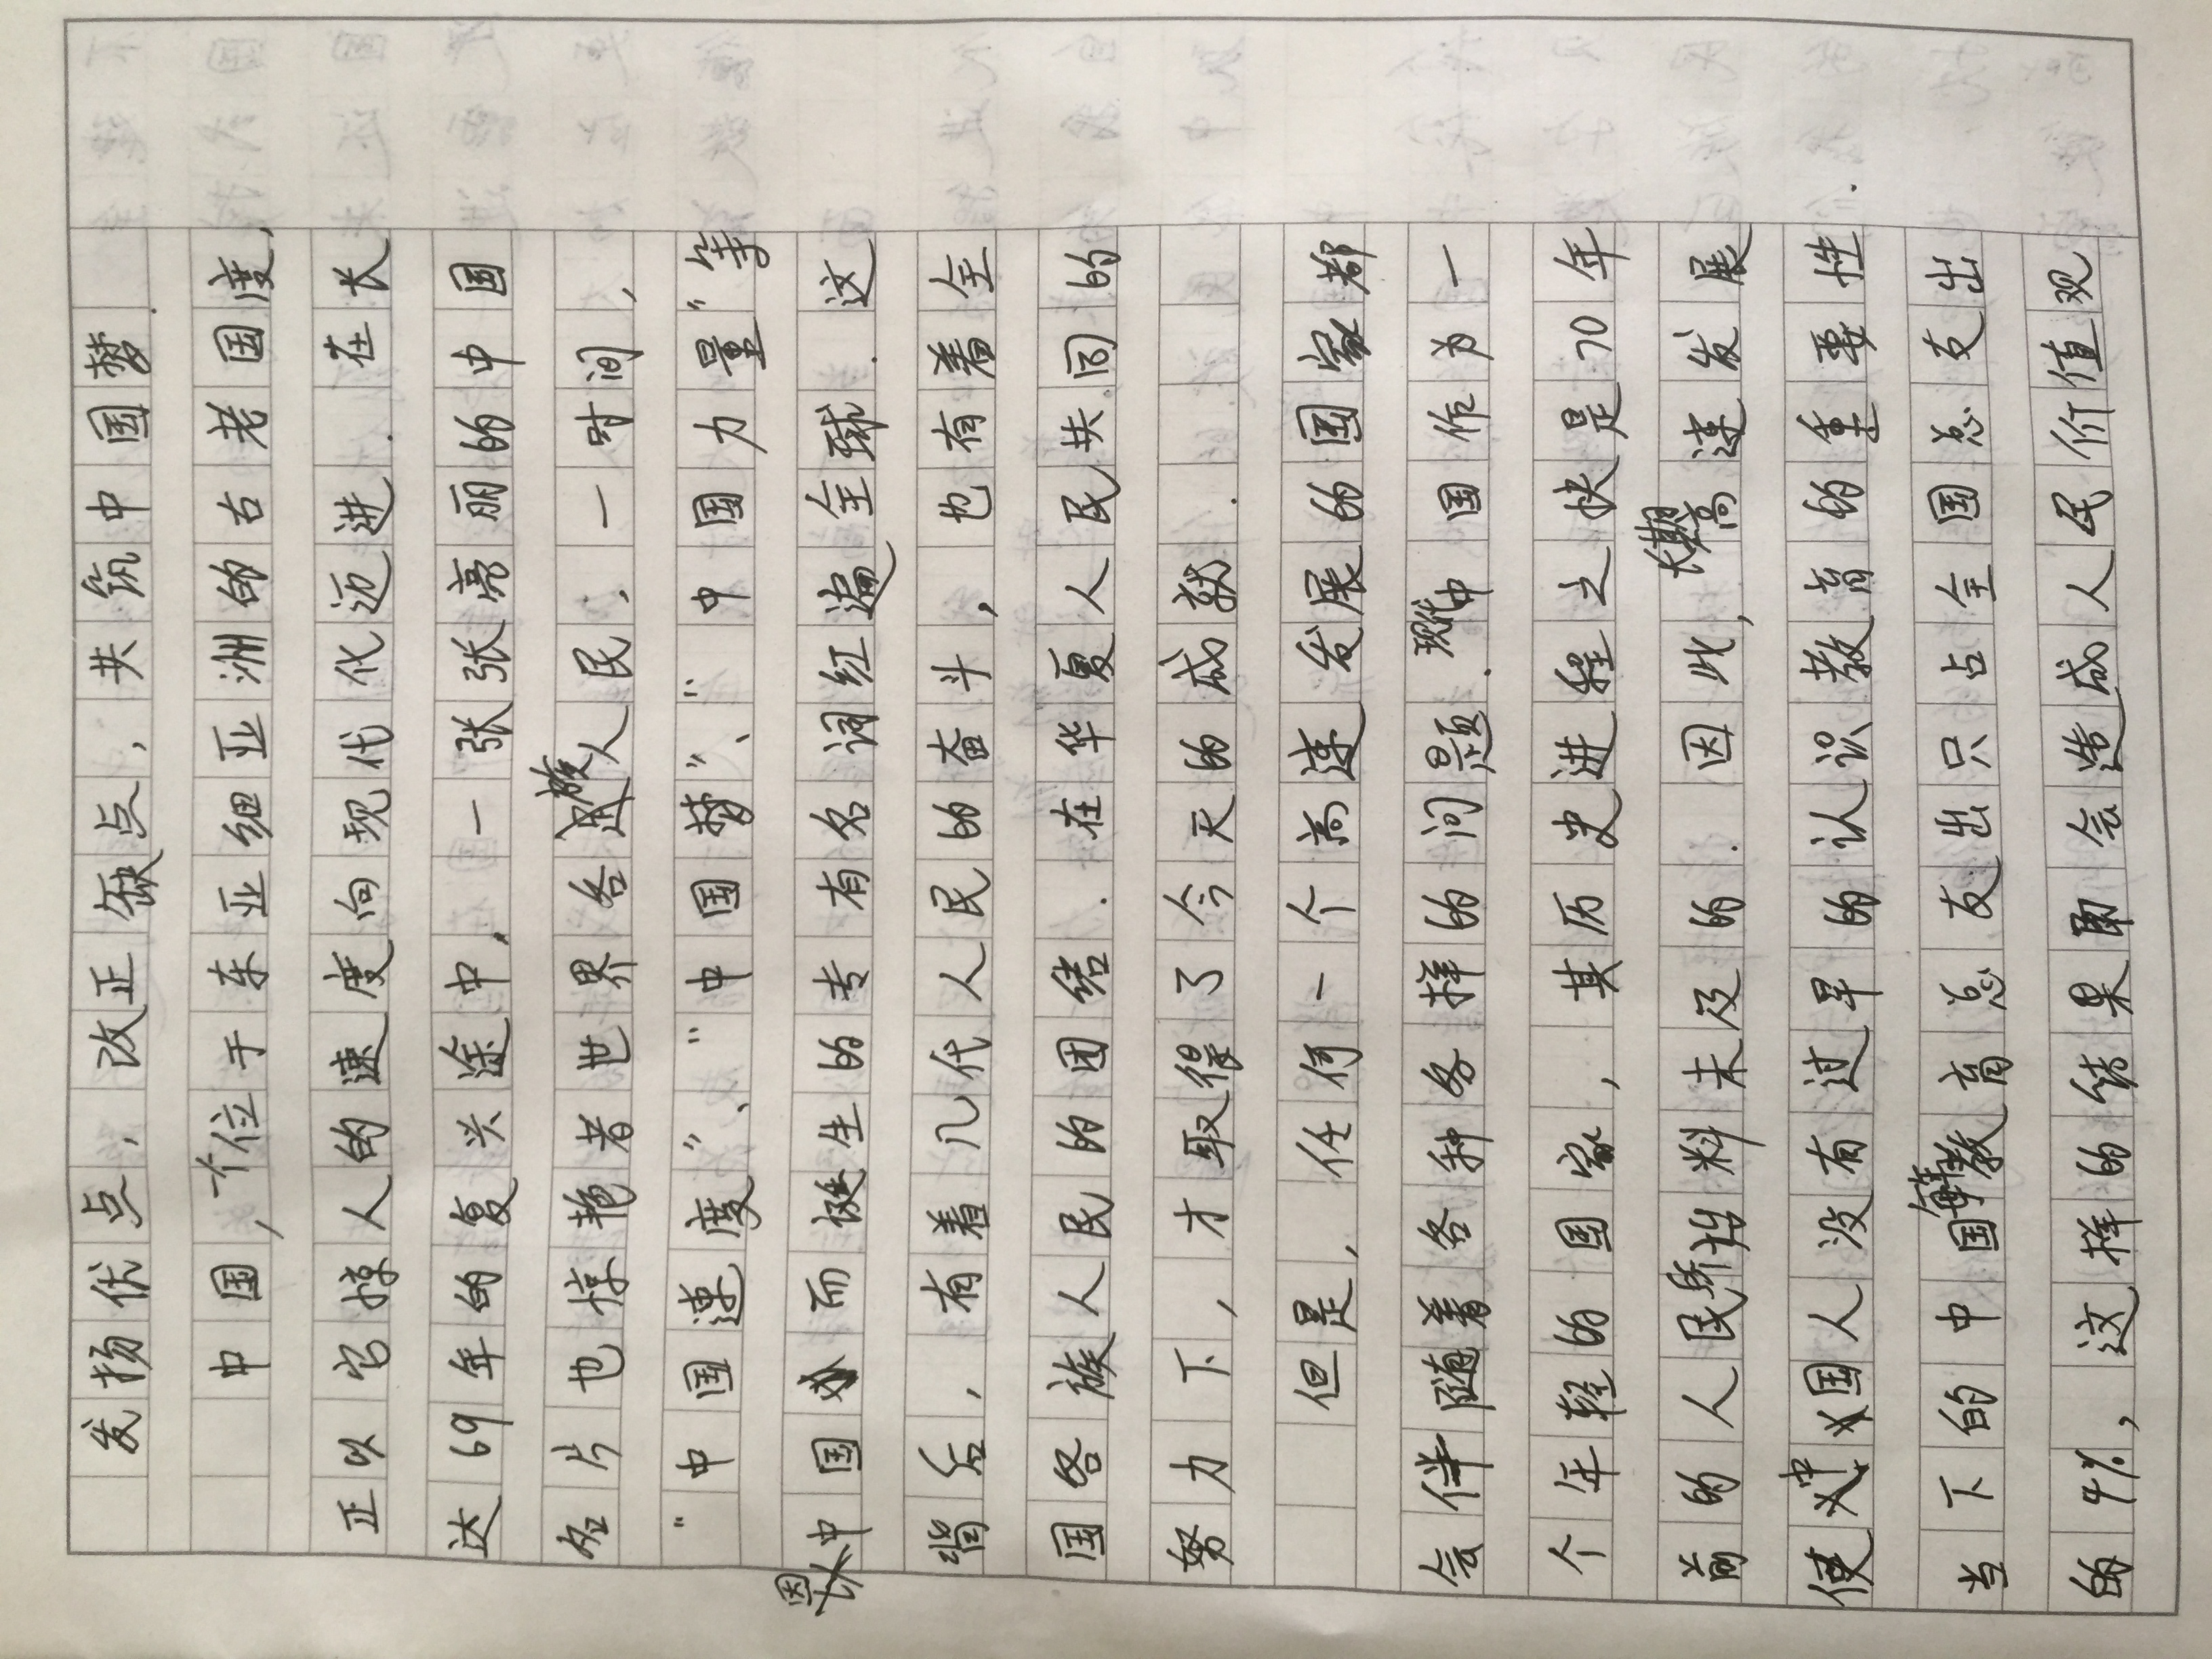 发扬优点，改正缺点，共筑中国梦.
中国，一个位于东亚细亚洲的古老国度，
正以它惊人的速度向现代代迈进.在长
达69年的复兴途中，一张张亮丽的中国
名片也惊艳者世界各族人民.一时间，
“中国速度”、“中国梦”、“中国力量”等
因中国而诞生的专有名词红遍全球.这
背后，有着几代人民的奋斗，也有着全
国各族人民的团结.在华夏人民共同的
努力下，才取得了今天的成就.
但是，任何一个高速发展的国家都
会伴随着各种各样的问题.现代中国作为一
个年轻的国家，其历史进程之快是70年
前的人民所始料未及的.因此，长期高速发展
使中国人没有过早的认识教育的重要性.
当下的中国每年教育总支出只占全国总支出
的4%，这样的结果会造成人民价值观